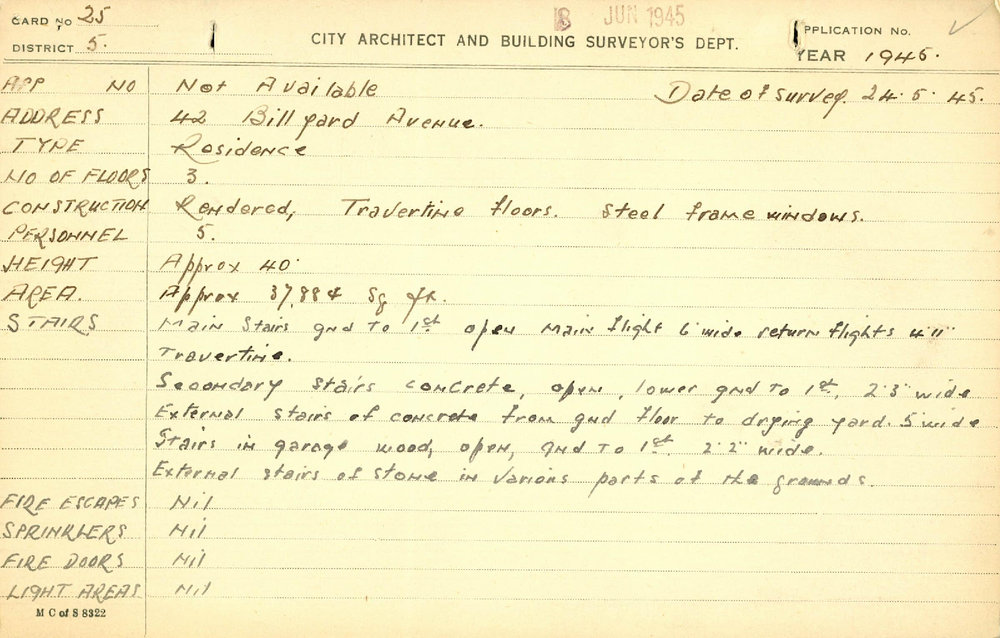 CARD No 25
8 JUN 1945
DISTRICT 5.
CITY ARCHITECT AND BUILDING SURVEYOR'S DEPT.
APPLICATION No.
YEAR 1945.
APP NO Not Available Date of survey. 24.5.45.
ADDRESS 42 Billyard Avenue.
TYPE Residence
NO OF FLOORS 3.
CONSTRUCTION Rendered, Travertine floors. Steel frame windows.
PERSONNEL 5.
HEIGHT Approx 40'
AREA. Approx 37,884 Sq ft.
STAIRS Main Stairs gnd to 1st open main flight 6' wide return flights 4'11"
Travertine.
Secondary stairs concrete, open, lower gnd to 1st, 2'3" wide
External stairs of concrete from gnd floor to drying yard. 5' wide
Stairs in garage wood, open, gnd to 1st. 2'2" wide.
External stairs of stone in various parts of the grounds.
FIRE ESCAPES Nil
SPRINKLERS Nil
FIRE DOORS Nil
LIGHT AREAS Nil
M C of S 8322